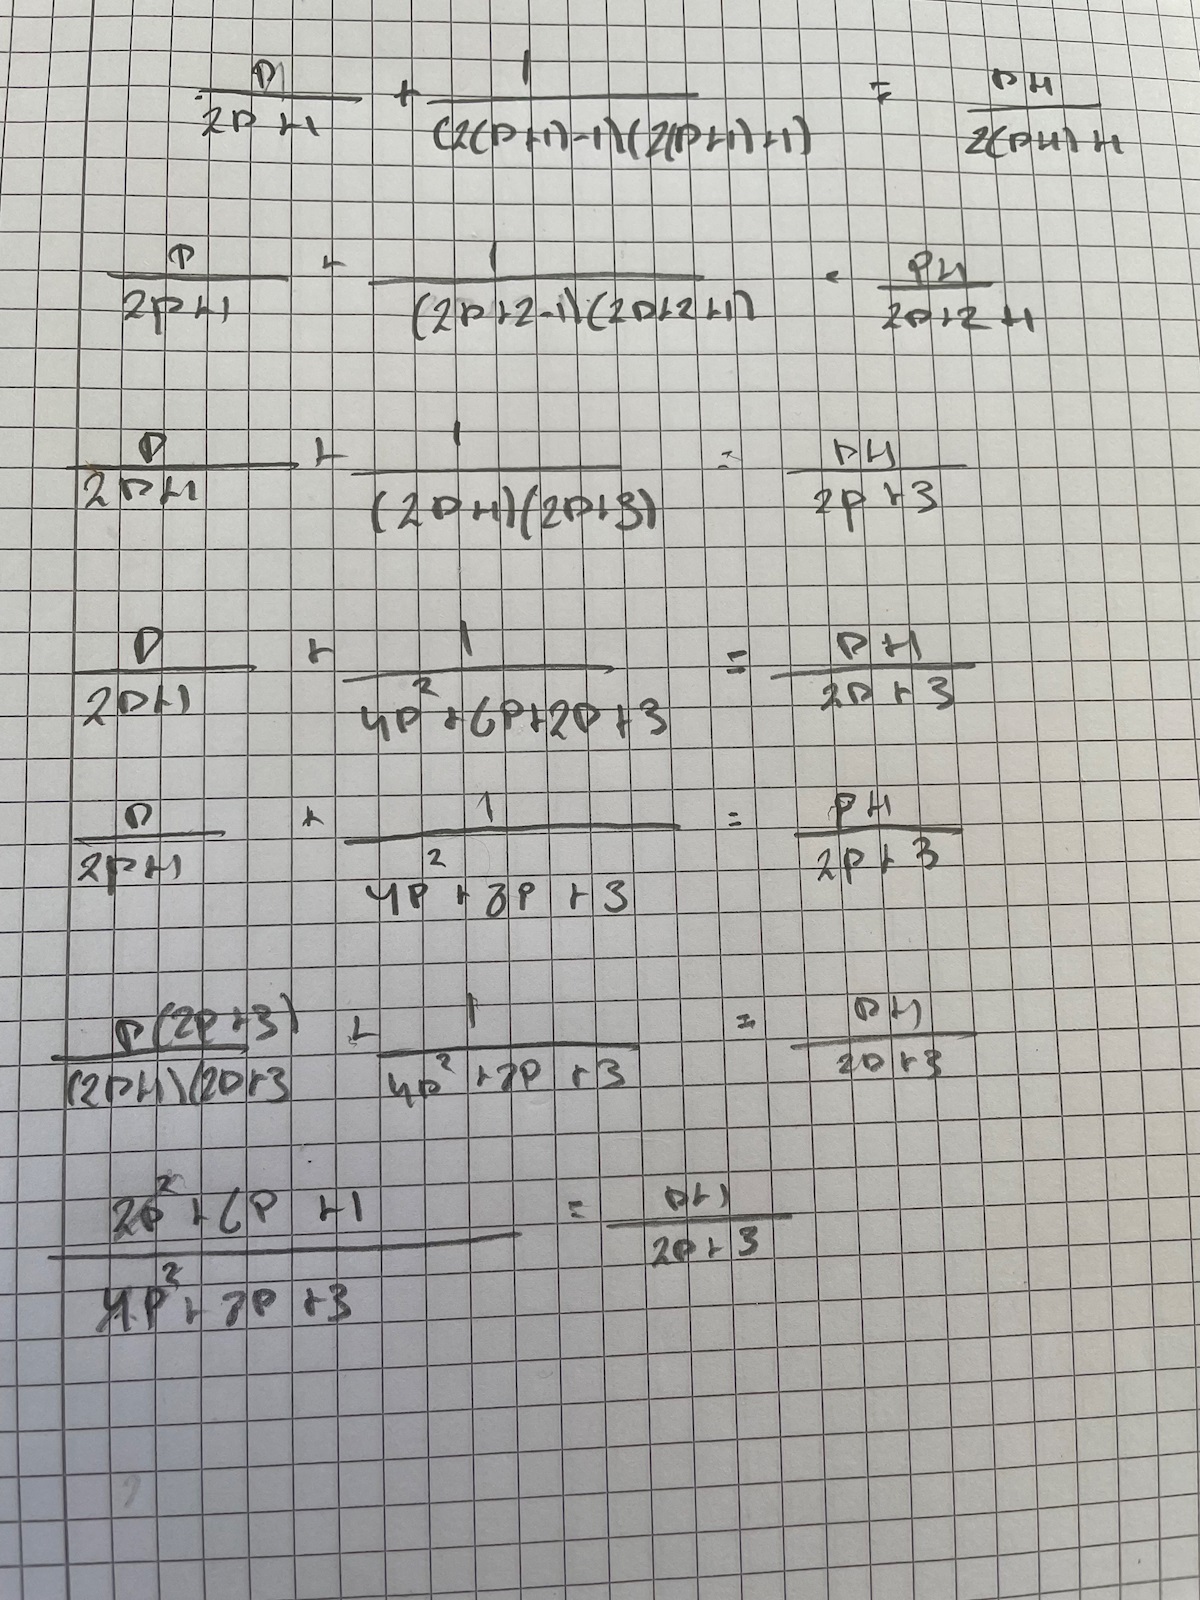 p/(2p+1) + 1/((2(p+1)-1)(2(p+1)+1)) = (p+1)/(2(p+1)+1)
p/(2p+1) + 1/((2p+2-1)(2p+2+1)) = (p+1)/(2p+2+1)
p/(2p+1) + 1/((2p+1)(2p+3)) = (p+1)/(2p+3)
p/(2p+1) + 1/(4p²+6p+2p+3) = (p+1)/(2p+3)
p/(2p+1) + 1/(4p²+8p+3) = (p+1)/(2p+3)
p(2p+3)/((2p+1)(2p+3 + 1/(4p²+8p+3) = (p+1)/(2p+3)
(2p²+6p+1)/(4p²+8p+3) = (p+1)/(2p+3)